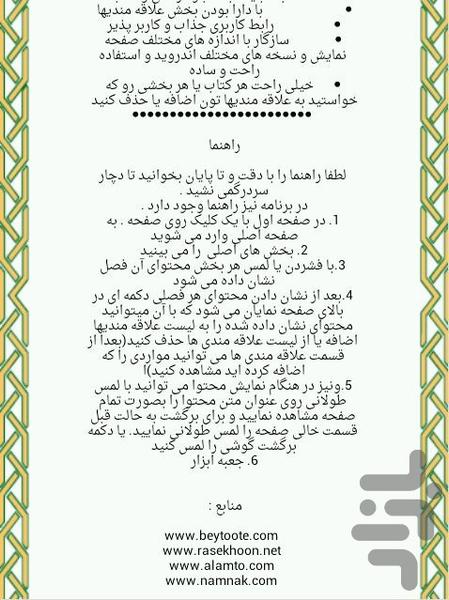 • با دارا بودن بخش علاقه مندیها
• رابط کاربری جذاب و کاربر پذیر
• سازگار با اندازه های مختلف صفحه
نمایش و نسخه های مختلف اندروید و استفاده
راحت و ساده
• خیلی راحت هر کتاب یا هر بخشی رو که
خواستید به علاقه مندیها تون اضافه یا حذف کنید
••••••••••••••••••••••••
راهنما
لطفا راهنما را با دقت و تا پایان بخوانید تا دچار
سردرگمی نشید .
در برنامه نیز راهنما وجود دارد .
1. در صفحه اول با یک کلیک روی صفحه . به
صفحه اصلی وارد می شوید
2. بخش های اصلی را می بینید
3.با فشردن یا لمس هر بخش محتوای آن فصل
نشان داده می شود
4.بعد از نشان دادن محتوای هر فصلی دکمه ای در
بالای صفحه نمایان می شود که با آن میتوانید
محتوای نشان داده شده را به لیست علاقه مندیها
اضافه یا از لیست علاقه مندی ها حذف کنید(بعدا از
قسمت علاقه مندی ها می توانید مواردی را که
اضافه کرده اید مشاهده کنید)ا
5.ونیز در هنگام نمایش محتوا می توانید با لمس
طولانی روی عنوان متن محتوا را بصورت تمام
صفحه مشاهده نمایید و برای برگشت به حالت قبل
قسمت خالی صفحه را لمس طولانی نمایید. یا دکمه
برگشت گوشی را لمس کنید
6. جعبه ابزار
منابع :
www.beytoote.com
www.rasekhoon.net
www.alamto.com
www.namnak.com
بازار